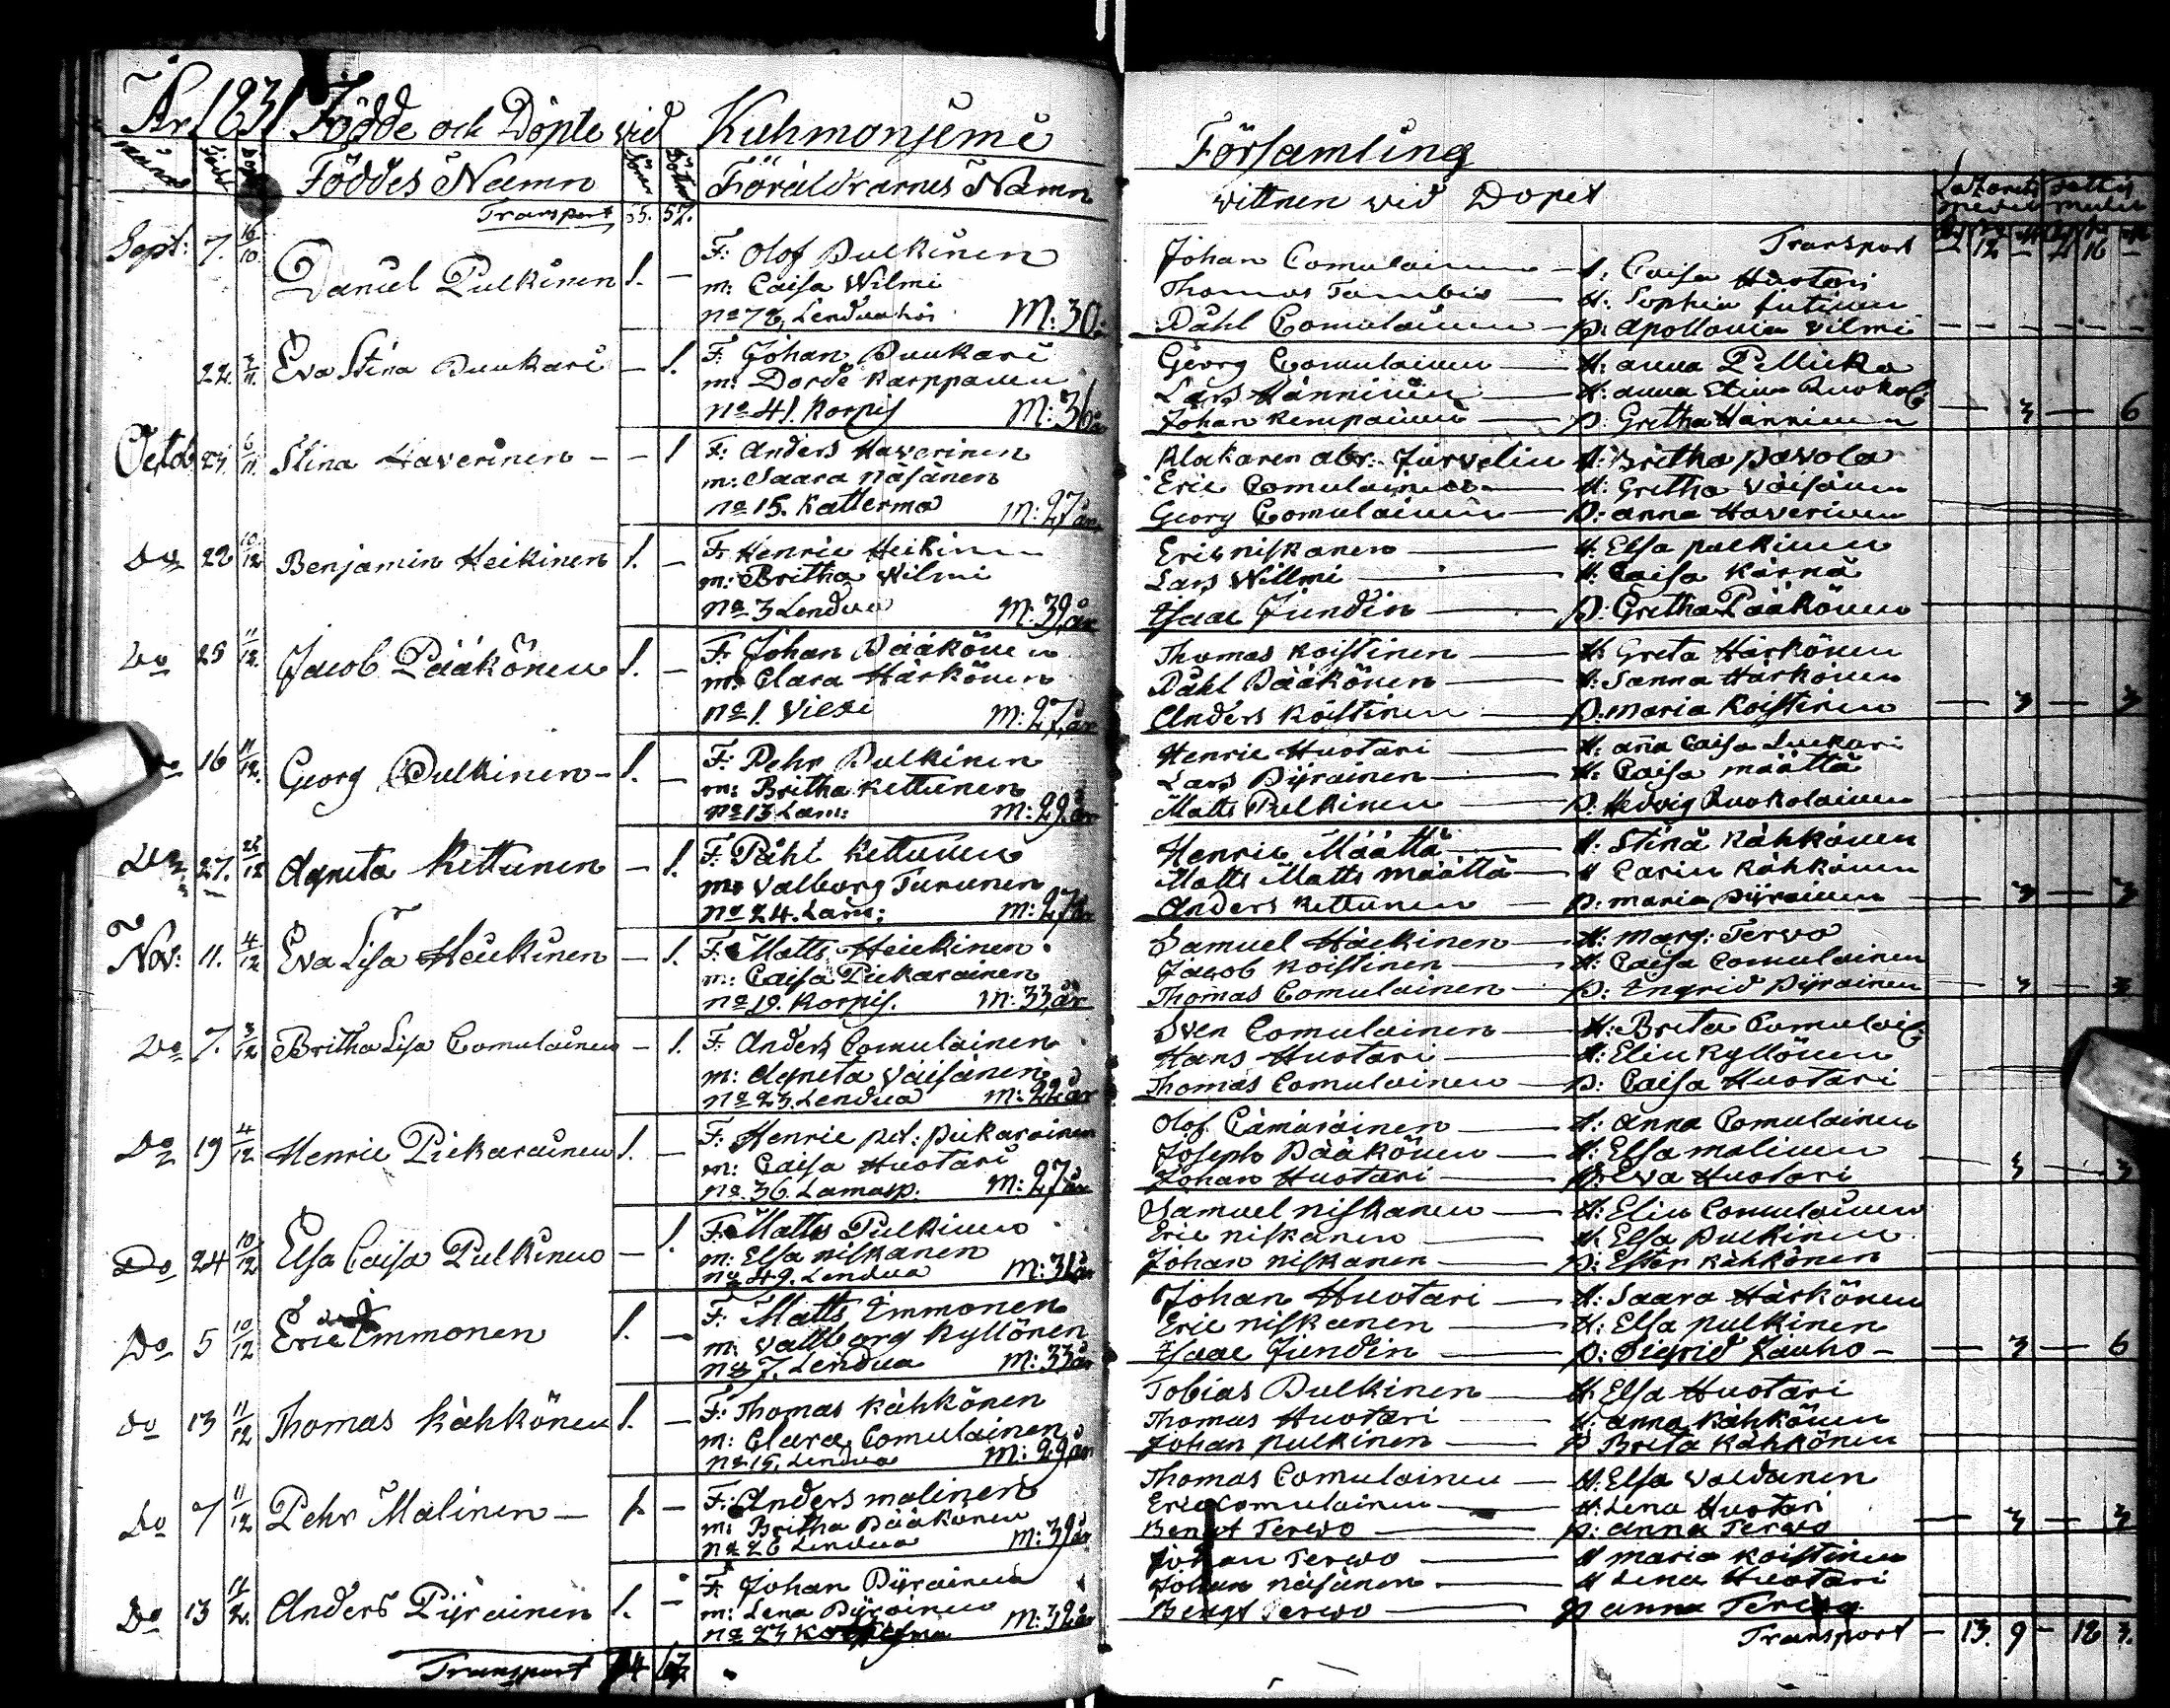 År 1831 Födde och Döpte vid Kuhmonjemi Församling
Födde Döpte Föddes Namn Söner Döttrar Föräldrarnes Namn
vittnen vid Dopet
Transport 65. 57.
Transport 12 16
Sept: 7. 16/10 Daniel Pulkinen 1. —
F: Olof Pulkinen
m: Caisa Wilmi
No 78,
M: 30.
Johan Comulainen — H: Caisa Huotari
Thomas — H: Sophia
Påhl Comulainen — p: Apollonia Wilmi
22. 3/11 Eva Stina Puukari — 1.
F: Johan Puukari
m: Dorde Karppanen
No 41. Korpis
M: 36
Georg Comulainen — H: anna
Lars Hänninen — H: anna Stina Ruokol:
Johan Kempainen — p: Gretha Hänninen — 3 — 6
Octob 6/11 Stina Haverinen — — 1
F: Anders Haverinen
m: Saara Näsänen
No 15. Katterma
M: 27 år
Klokaren abr: Jurvelin H: Britha Pavola
Eric Comulainen — H: Gretha Väisänen
Georg Comulainen — p: anna Haverinen
Do 22 10/12 Benjamin Heikinen 1. —
F: Henric Heikinen
m: Britha Wilmi
No 3 Lendua
M: 39 år
Eric niskanen — H: Elsa pulkinen
Lars Willmi — H: Caisa Kärnä
Isaac Jundin — p: Gretha Pääkönen
Do 25 11/12 Jacob Pääkönen 1. —
F: Johan Pääkönen
m: Clara Härkönen
No 1. Viexi
M: 27, år
Thomas Koistinen — H: Greta Härkönen
Påhl Pääkönen — H: Sanna Härkönen
Anders Koistinen — p: maria Koistinen — 3 — 3
Do 16 11/12. Georg Pulkinen — 1. —
F: Pehr Pulkinen
m: Britha Kettunen
No 13 Lam:
M: 29 år
Henric Huotari — H: aña Caisa
Lars Pyrainen — H: Caisa määttä
Matts Pulkinen — p: Hedvig Ruokolainen
Do 27. Agneta Kettunen — 1.
F: Påhl Kettunen
m: Valborg Turunen
No 24. Lam:
M: 27 år
Henric Määttä — H: Stina Kähkönen
Matts Matts määttä — H Carin Kähkönen
Anders Kettunen — p: maria Pyrainen — 3 — 3
Nov: 11. 4/12 Eva Lisa Heikinen — 1.
F: Matts Heickinen
m: Caisa Pickarainen
No 19. Korpis.
M: 33, år
Samuel Häckinen — H: Marg: Tervo
Jacob Koistinen — H: Caisa Comulainen
Thomas Comulainen — p: Ingrid Pyrainen — 3 — 3
Do 7. 3/12 Britha Lisa Comulainen — 1.
F: Anders Comulainen
m: Agneta Väisänen
No 23. Lendua
M: 22 år
Sven Comulainen — H: Brita
Hans Huotari — H: Elin Kyllönen
Thomas Comulainen — p: Caisa Huotari
Do 19 4/12 Henric Pickarainen 1. —
F: Henric pet: Pickarainen
m: Caisa Huotari
No 36. Lamasp.
M: 27 år
Olof Cämäräinen — H: anna Comulainen
Joseph Pääkönen — H: Elsa malinen
Johan Huotari — p: Eva Huotari — 3 — 3
Do 24 10/12 Elsa Caisa Pulkinen — 1.
F: Matts Pulkinen
m: Elsa niskanen
No 49. Lendua
M: 31 år
Samuel niskanen — H: Elin Comulainen
Eric niskanen — H: Elsa Pulkinen
Johan niskanen — p: Ester Kähkönen
Do 5 10/12 Eric Immonen 1. —
F: Matts Immonen
m: Vallborg Kyllönen
No 7. Lendua
M: 33 år
Johan Huotari — H: Saara Härkönen
Eric niskanen — H: Elsa pulkinen
Isaac Jundin — p: Sigrid Kauho — — 3 — 6
do 13 11/12 Thomas Kähkönen 1. —
F: Thomas Kähkönen
m: Clara Comulainen
No 15. Lendua
M: 29, år
Tobias Pulkinen — H: Elsa Huotari
Thomas Huotari — H: anna Kähkönen
Johan pulkinen — p Brita Kähkönen
Do 7 11/12 Pehr Malinen — 1. —
F: Anders malinen
m: Britha Pääkönen
No 26 Lendua
M: 39 år
Thomas Comulainen — H: Elsa
Eric Comulainen — H: Lena Huotari
Bengt Terwo — p: anna Terwo — 3 — 3
Do 13 Anders Pyrainen 1. —
F: Johan Pyrainen
m: Lena Pyrainen
No 23
M: 32 år
Johan Terwo — H maria Koistinen
Johan näsänen — H Lena Huotari
Bengt Terwo — p anna Terwo
Transport
Transport — 13. 9 — 18 3.